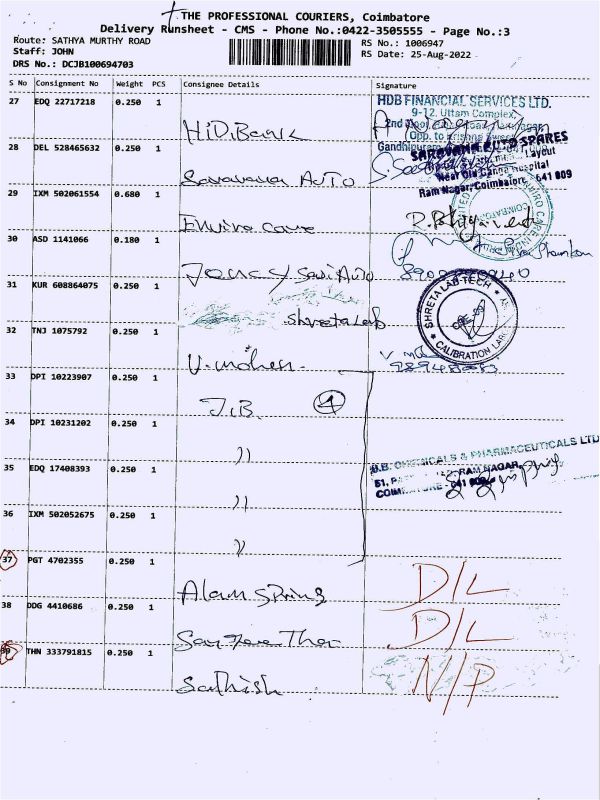 THE PROFESSIONAL COURIERS, Coimbatore
Delivery Runsheet - CMS - Phone No.:0422-3505555 - Page No.:3
Route: SATHYA MURTHY ROAD
RS No.: 1006947
Staff: JOHN
RS Date: 25-Aug-2022
DRS No.: DCJB100694703
S No Consignment No Weight PCS Consignee Details Signature
27 EDQ 22717218 0.250 1
HDB FINANCIAL SERVICES LTD.
9-12, Uttam Complex,
28 DEL 528465632 0.250 1
SARAVANA AUTO SPARES
Saravana AUTO
Ram Nagar, Coimbatore - 641 009
29 IXM 502061554 0.680 1
Enviro care
30 ASD 1141066 0.180 1
31 KUR 608864075 0.250 1
shreta Lab
SHRETA LAB TECH
CALIBRATION
32 TNJ 1075792 0.250 1
V. mohen.
33 DPI 10223907 0.250 1
J.B. 4
34 DPI 10231202 0.250 1
"
J.B. CHEMICALS & PHARMACEUTICALS LTD
RAM NAGAR,
35 EDQ 17408393 0.250 1
"
36 IXM 502052675 0.250 1
"
37 PGT 4702355 0.250 1
Alam Spring D/L
38 DDG 4410686 0.250 1
D/L
39 THN 333791815 0.250 1
Sathish N/P